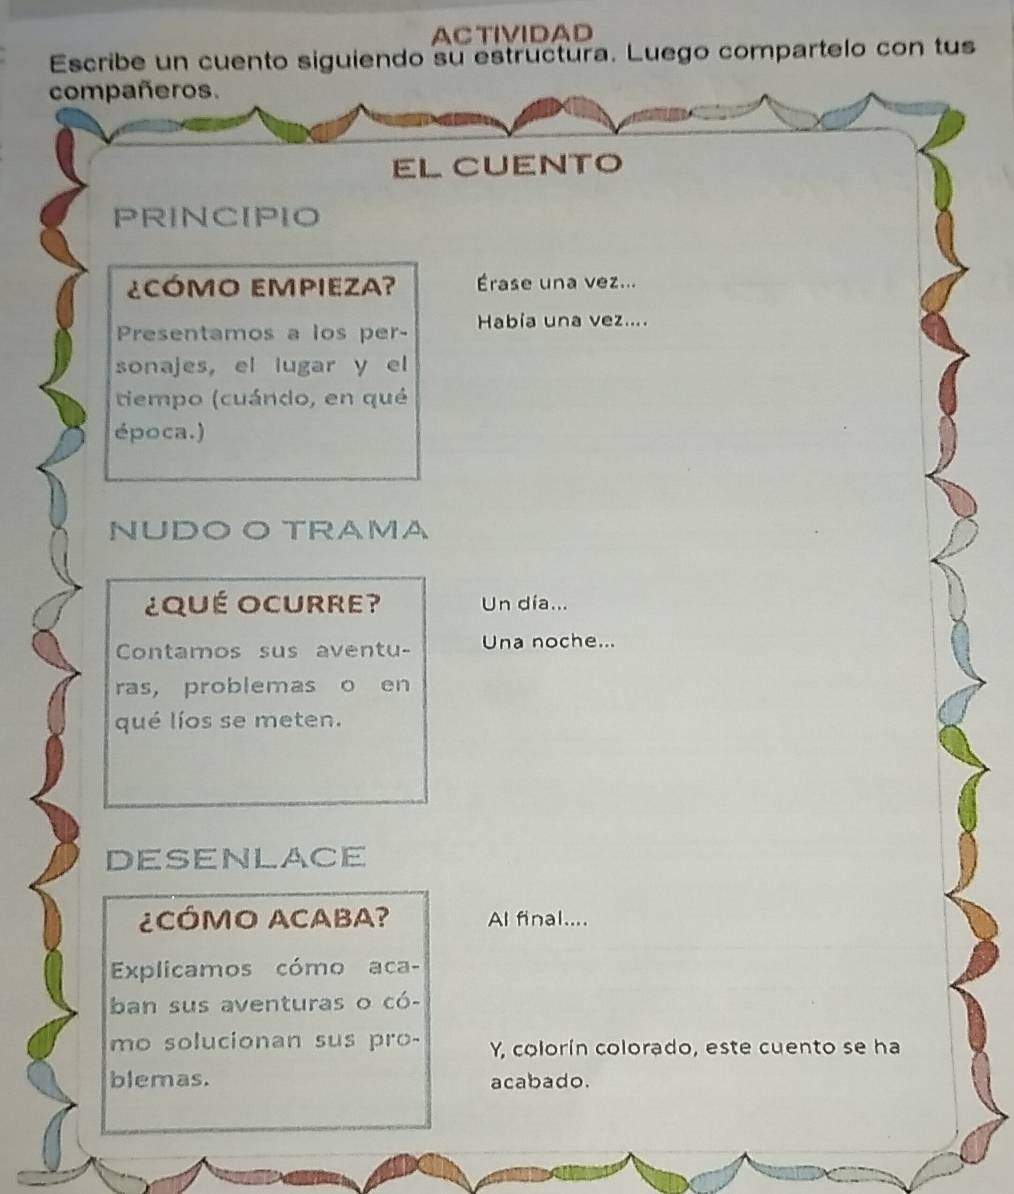 ACTIVIDAD
Escribe un cuento siguiendo su estructura. Luego compartelo con tus
compañeros.
EL CUENTO
PRINCIPIO
¿CÓMO EMPIEZA?
Presentamos a los per-
sonajes, el lugar y el
tiempo (cuándo, en qué
época.)
Érase una vez...
Había una vez....
NUDO O TRAMA
¿QUÉ OCURRE?
Contamos sus aventu-
ras, problemas o en
qué líos se meten.
Un día...
Una noche...
DESENLACE
¿CÓMO ACABA?
Explicamos cómo aca-
ban sus aventuras o có-
mo solucionan sus pro-
blemas.
Al final....
Y, colorín colorado, este cuento se ha
acabado.